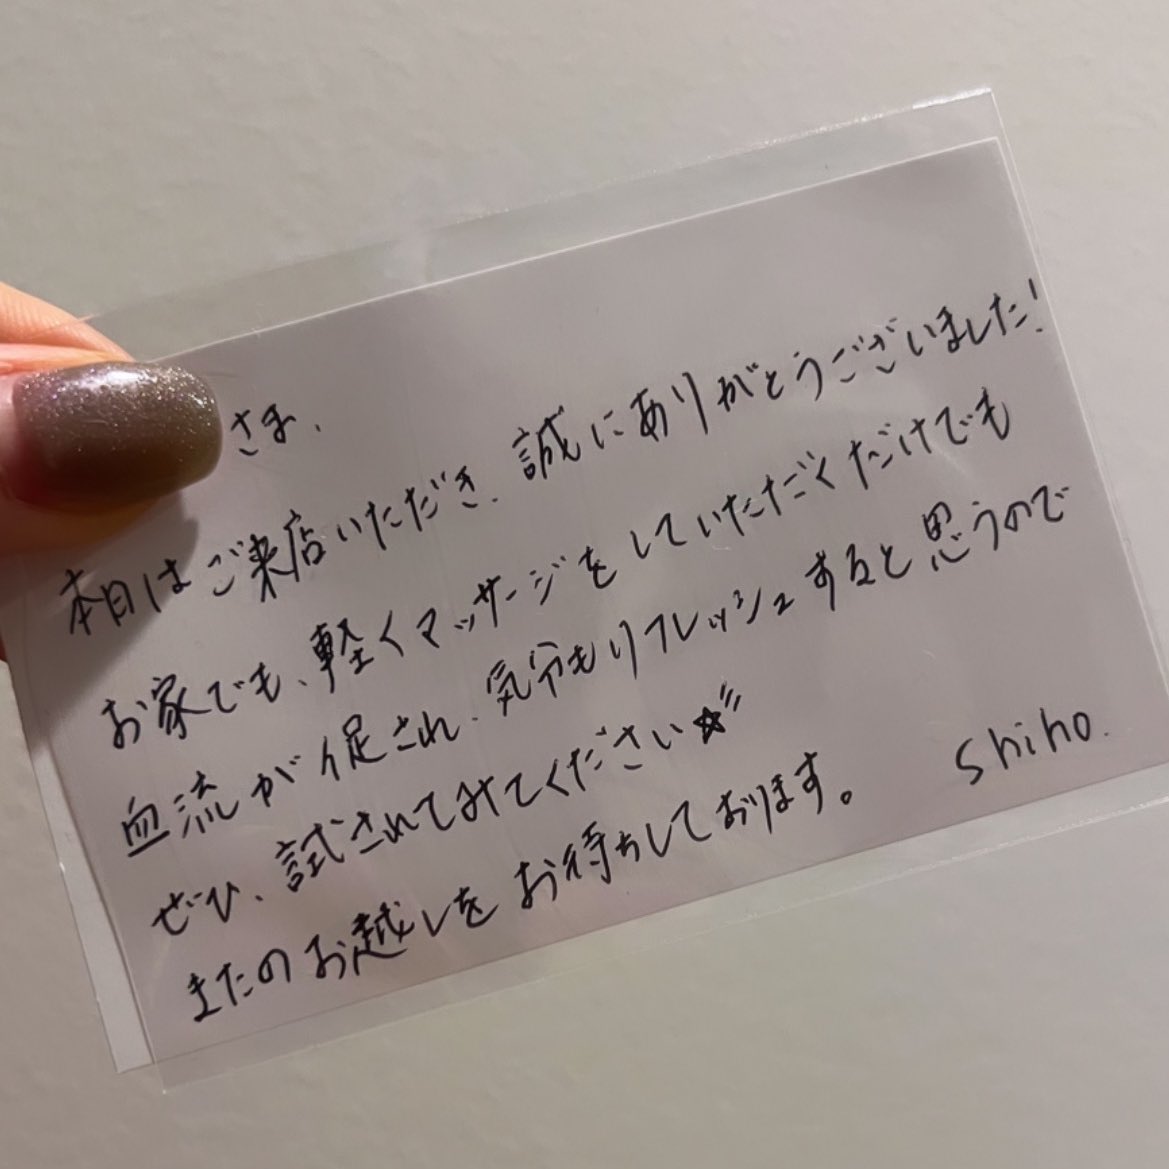 さま、
本日はご来店いただき、誠にありがとうございました!
お家でも、軽くマッサージをしていただくだけでも
血流が促され、気分もリフレッシュすると思うので
ぜひ、試されてみてください☆
またのお越しをお待ちしております。
shiho.